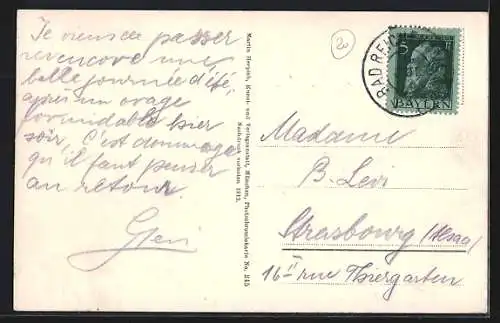 Je viens de passer
encore une
belle journée d'été,
après un orage
formidable hier
soir, C'est dommage
qu'il faut penser
au retour.
Martin Herpich, Kunst- und Verlagsanstalt, München, Photochromiekarte No. 245
Nachdruck verboten 1912.
20
5
BAYERN
BAD REICH
Madame
B. Levi
Strasbourg (Alsac
16 II rue Thiergarten